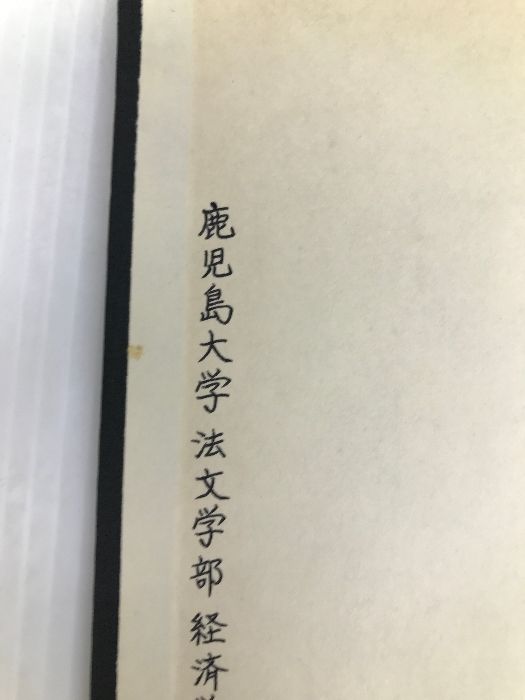 鹿児島大学 法文学部 経済